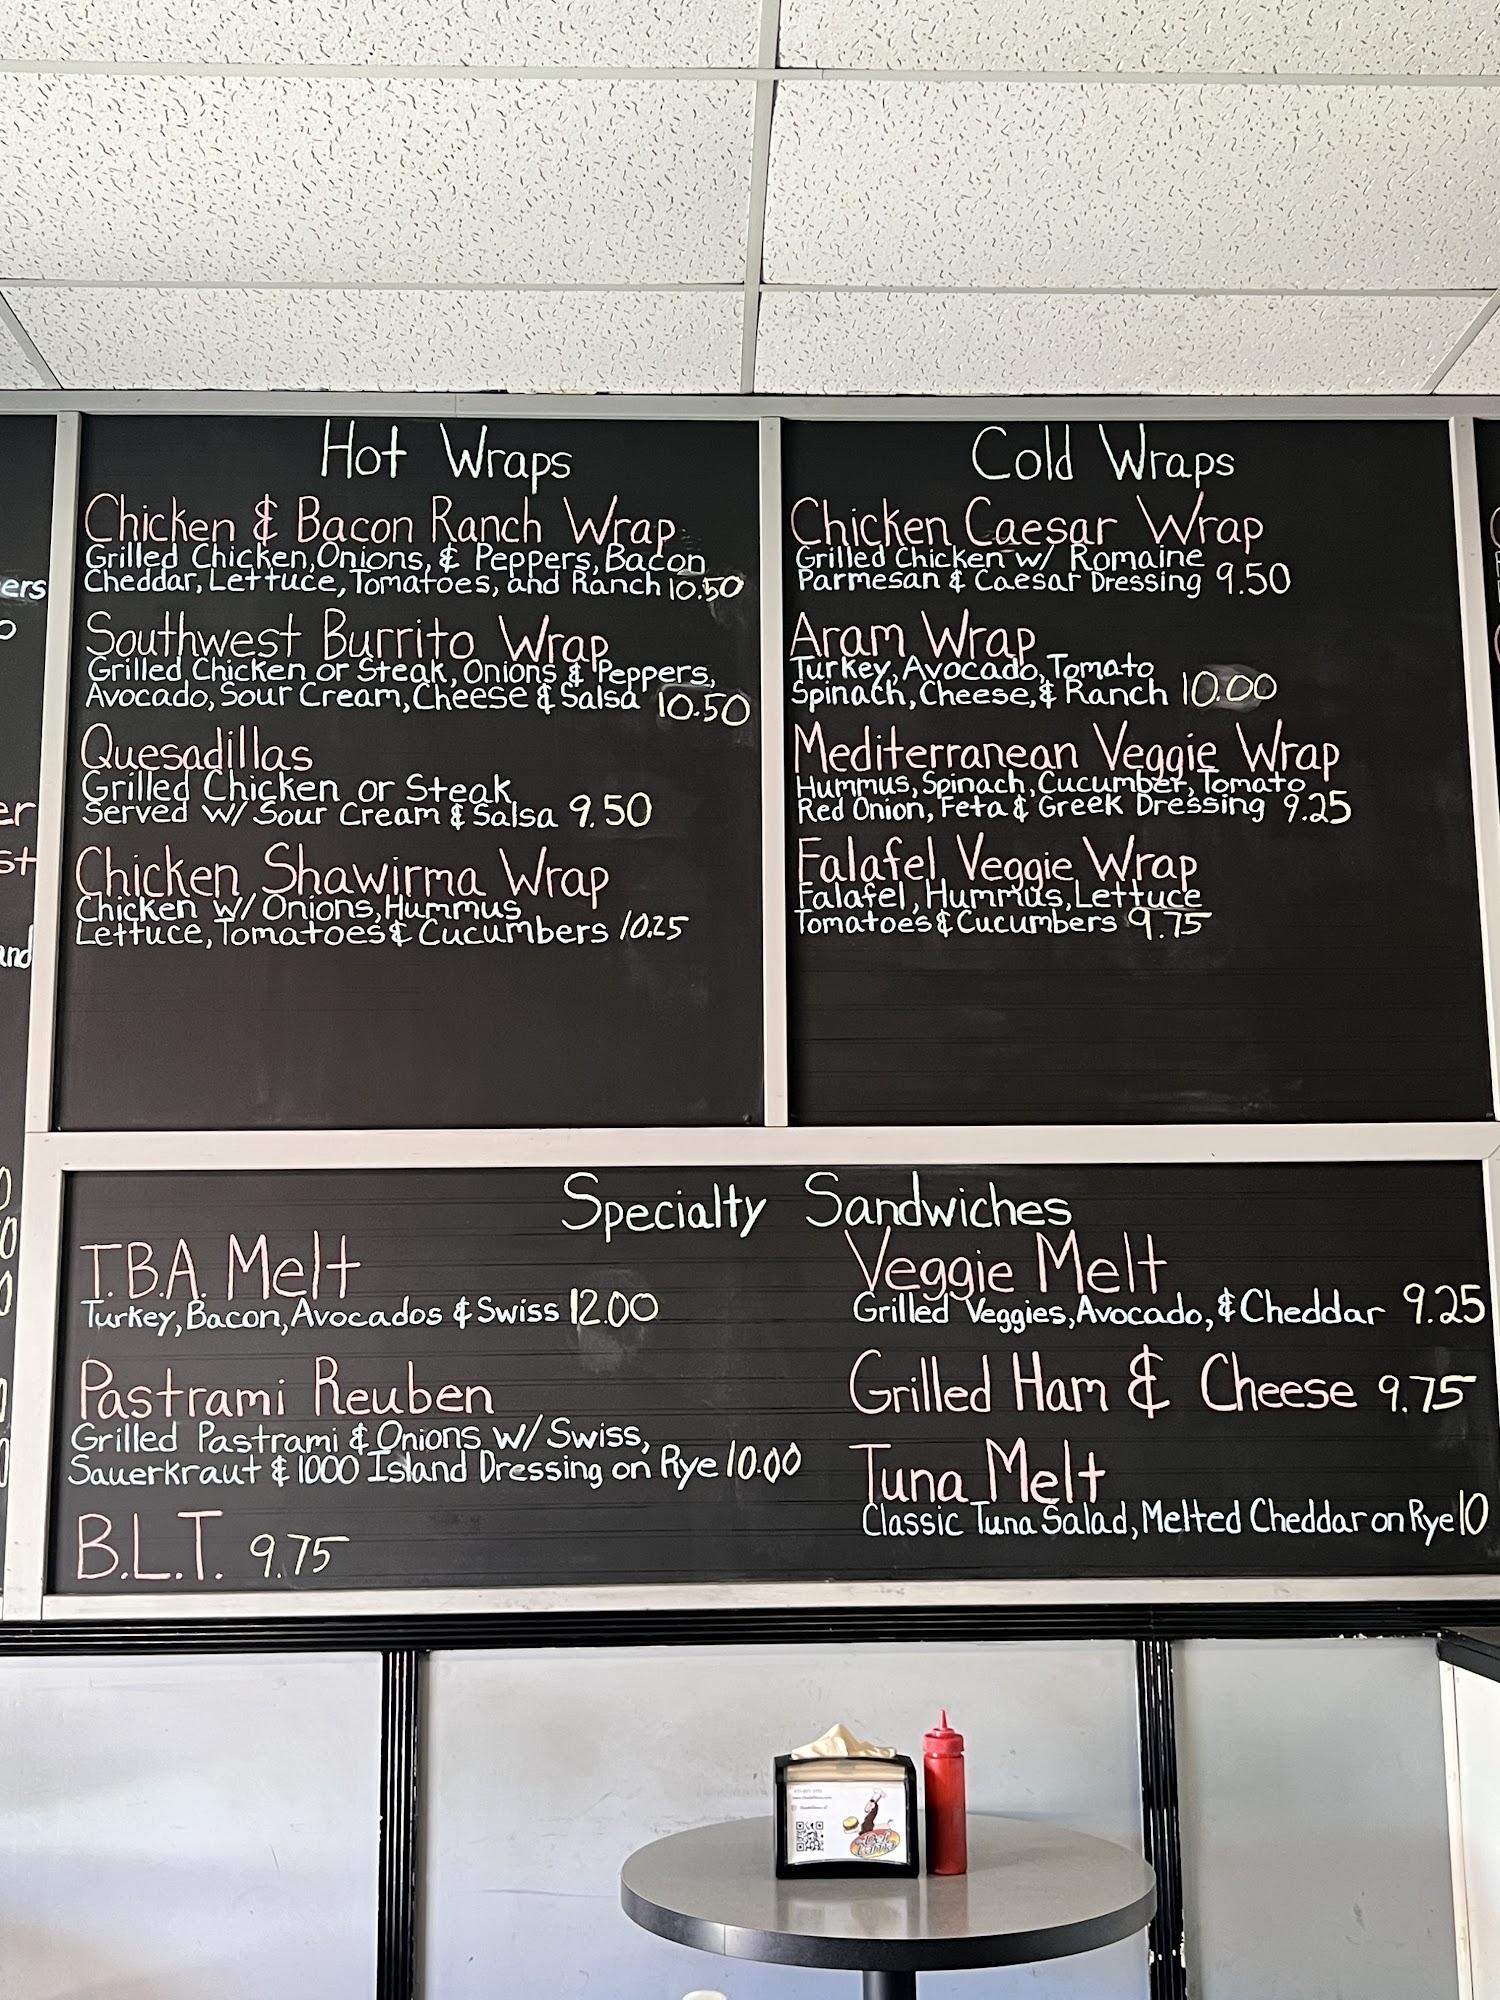 Hot Wraps
Chicken & Bacon Ranch Wrap
Grilled Chicken, Onions, & Peppers, Bacon
Cheddar, Lettuce, Tomatoes, and Ranch 10.50
Southwest Burrito Wrap
Grilled Chicken or Steak, Onions & Peppers,
Avocado, Sour Cream, Cheese & Salsa 10.50
Quesadillas
Grilled Chicken or Steak
Served w/ Sour Cream & Salsa 9.50
Chicken Shawirma Wrap
Chicken w/ Onions, Hummus
Lettuce, Tomatoes & Cucumbers 10.25
Cold Wraps
Chicken Caesar Wrap
Grilled Chicken w/ Romaine
Parmesan & Caesar Dressing 9.50
Aram Wrap
Turkey, Avocado, Tomato
Spinach, Cheese, & Ranch 10.00
Mediterranean Veggie Wrap
Hummus, Spinach, Cucumber, Tomato
Red Onion, Feta & Greek Dressing 9.25
Falafel Veggie Wrap
Falafel, Hummus, Lettuce
Tomatoes & Cucumbers 9.75
Specialty Sandwiches
T.B.A. Melt
Turkey, Bacon, Avocados & Swiss 12.00
Pastrami Reuben
Grilled Pastrami & Onions w/ Swiss,
Sauerkraut & 1000 Island Dressing on Rye 10.00
B.L.T. 9.75
Veggie Melt
Grilled Veggies, Avocado, & Cheddar 9.25
Grilled Ham & Cheese 9.75
Tuna Melt
Classic Tuna Salad, Melted Cheddar on Rye 10